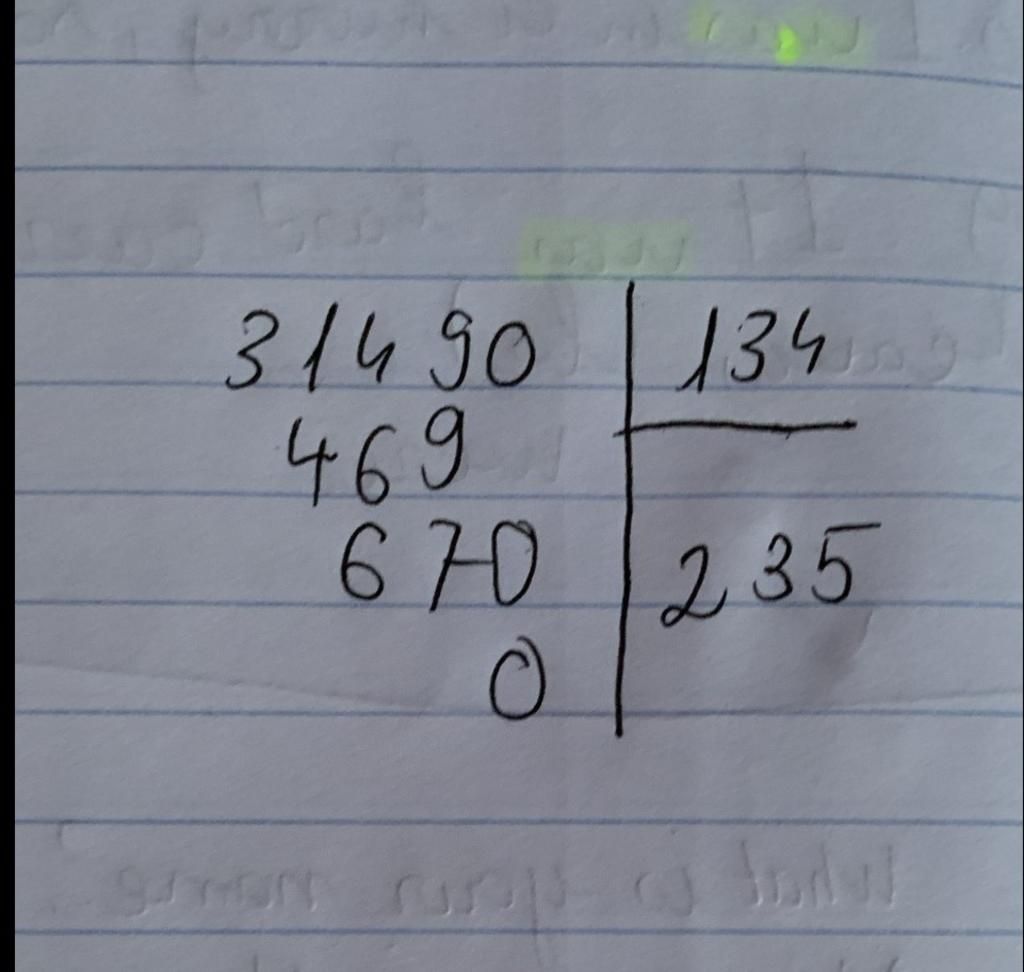 31490 134
469
670 235
0